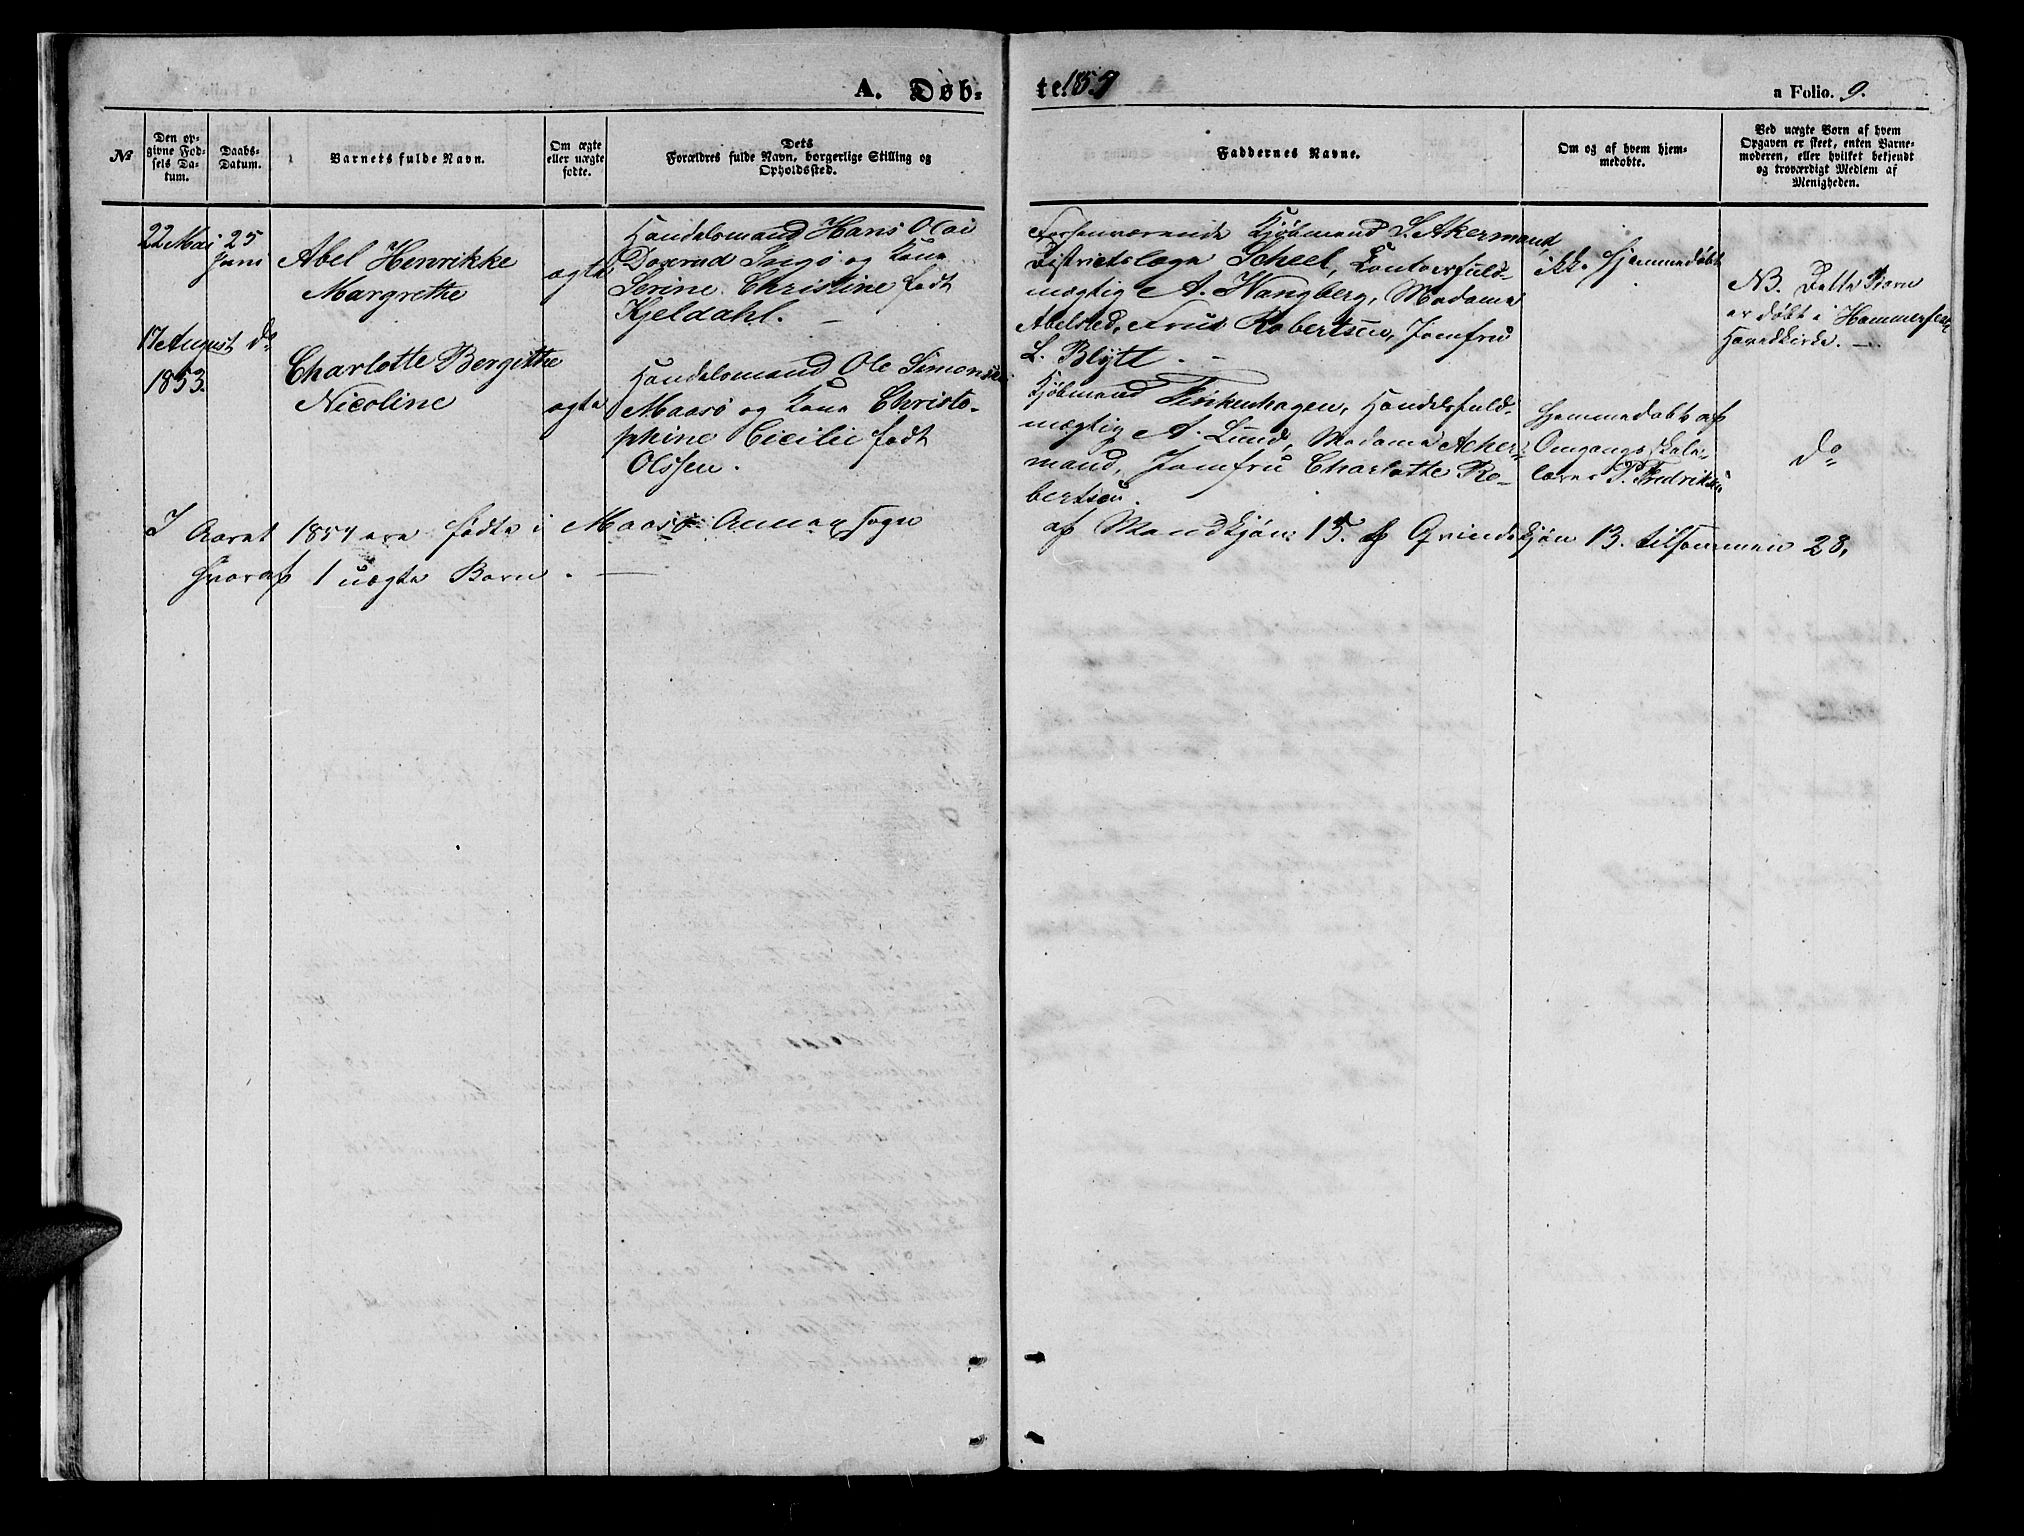 A. Døb-
te. 1857
a Folio. 9.
№
Den op-
givne Fød-
sels Da-
tum.
Daabs-
Datum.
Barnets fulde Navn.
Om ægte
eller uægte
fødte.
Dets
Forældres fulde Navn, borgerlige Stilling og
Opholdssted.
Faddernes Navne.
Om og af hvem hjem-
medøbte.
Ved uægte Børn af hvem
Opgaven er skeet, enten Barne-
moderen, eller hvilket bekjendt
og troværdigt Medlem af
Menigheden.
22 Mai
25
Juni
Abel Henrikke
Margrethe
ægte
Handelsmand Hans Olai
Ingø og Kone
Serine Christine født
Kjeldahl. —
Kjøbmand S. Akermand,
Districtslæge Scheel, Contoirfuld-
mægtig A. Wangberg, Madame
Abelsted, Frue Robertsen, Jomfru
L. Blytt. —
ikke hjemmedøbt
NB. Dette Barn
er døbt i Hammerfest
Hovedkirke. —
17 August
1853.
do
Charlotte Bergithe
Nicoline
ægte
Handelsmand Ole Simonsen
Maasø og Kone Christo-
phine Cicilie født
Olssen.
Kjøbmand Finkenhagen, Handelsfuld-
mægtig A. Lund, Madame Acher-
mand, Jomfru Charlotte Ro-
bertsen.
hjemmedøbt af
Omgangsskole-
lærer P. Fredriksen
Do
I Aaret 1857 ere fødte i Maasø Annex Sogn
af Mandkjøn 15. af Qvindekjøn 13. tilsammen 28,
hvoraf 1 uægte Barn. —